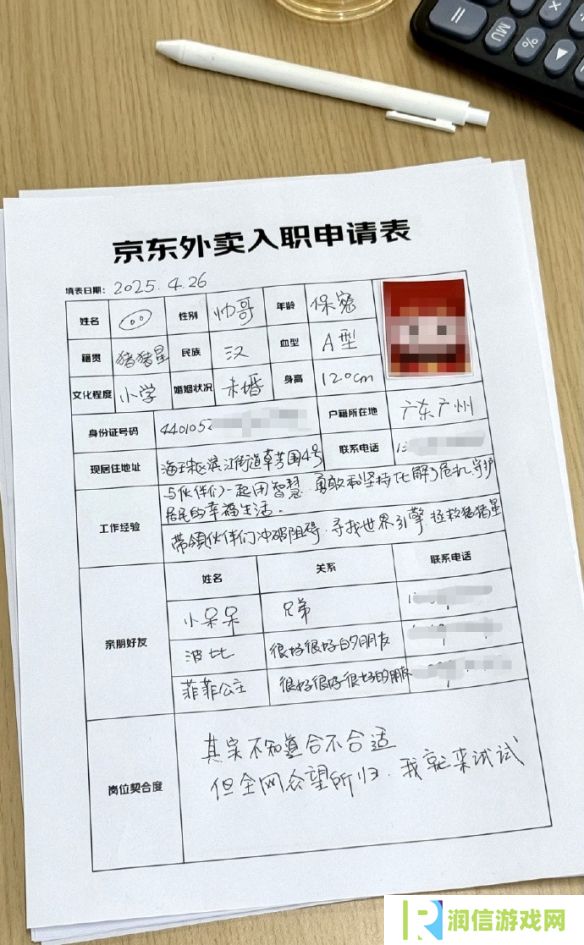 = MU % ▼
京东外卖入职申请表
填表日期: 2025.4.26
姓名 性别 帅哥 年龄 保密
籍贯 猪猪星 民族 汉 血型 A型
文化程度 小学 婚姻状况 未婚 身高 120cm
身份证号码 440105 户籍所在地 广东广州
现居住地址 海珠区滨江街道草芳围4号 联系电话 1
工作经验
与伙伴们一起用智慧 勇敢和坚持化解危机,守护
居民的幸福生活.
带领伙伴们冲破阻碍.寻找世界引擎 拯救猪猪星
亲朋好友 姓名 关系 联系电话
小呆呆 兄弟 1
波比 很好很好的朋友
菲菲公主 很好很好很好的朋友
岗位契合度
其实不知道合不合适
但全网众望所归.我就来试试
润信游戏网